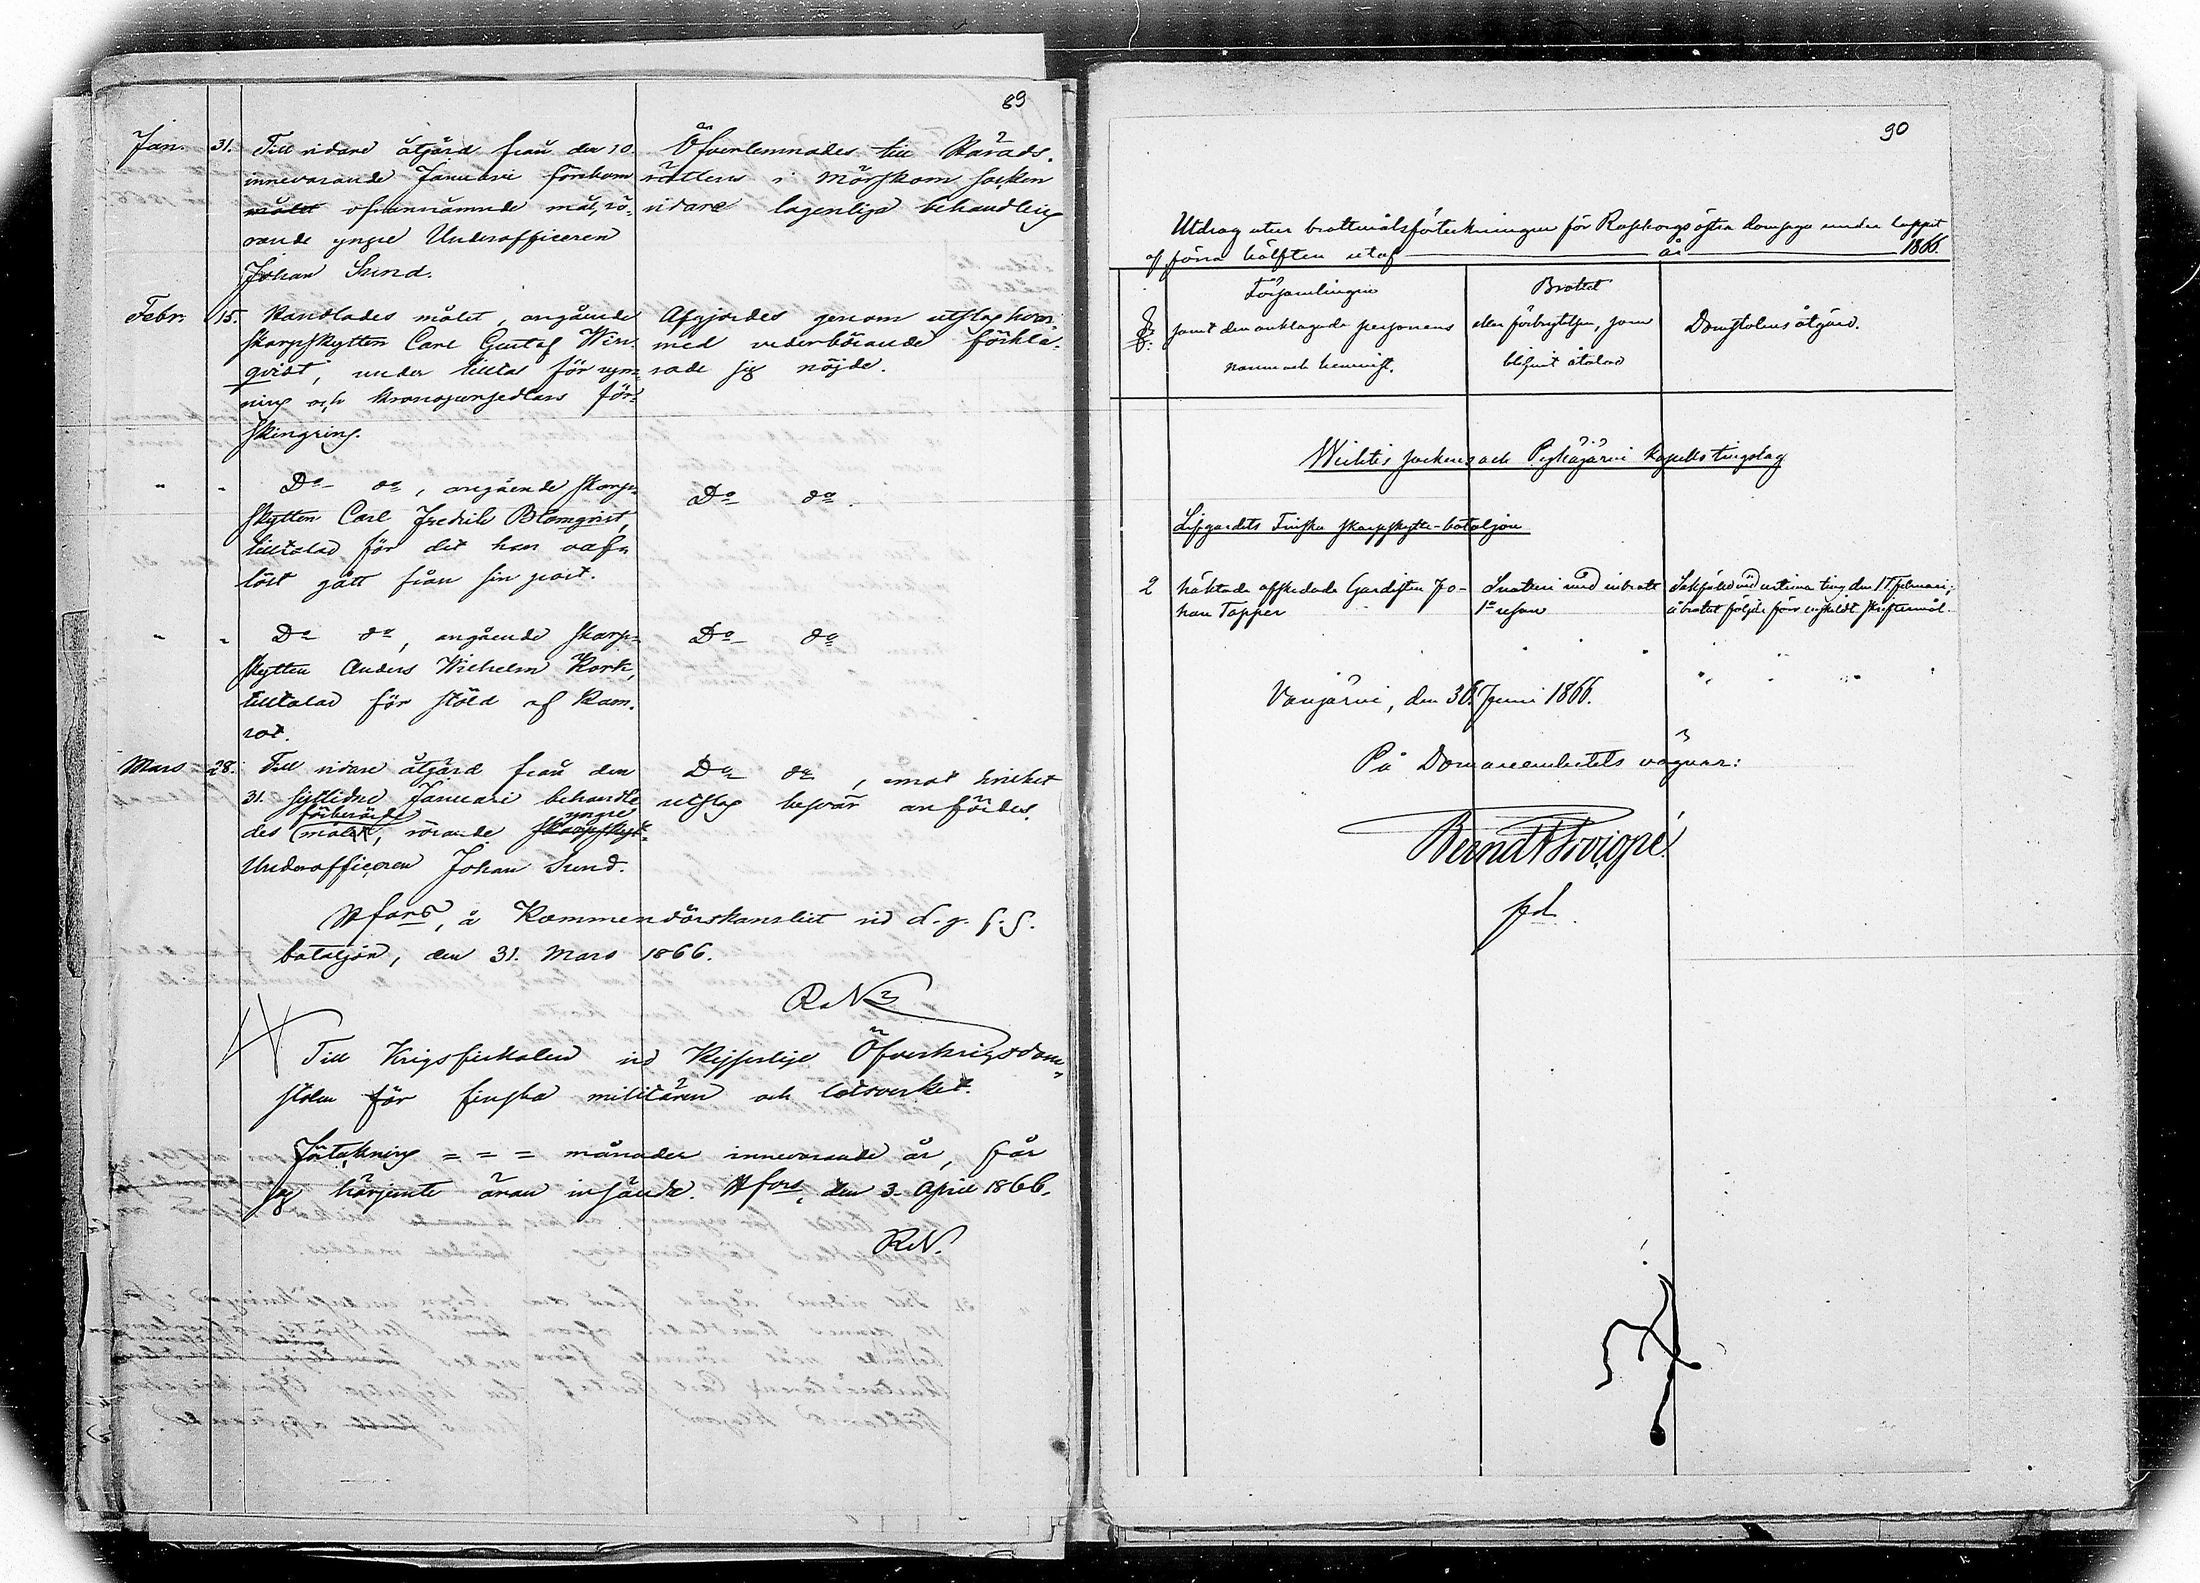 89
Jan. 31. Till vidare åtgärd från den 10. Öfverlemnades till Härads-
innevarande Januari förekom rättens i Mörskom socken
målet ofvannämnde mål, rö- vidare lagenliga behandling
rande yngre Underofficeren
Johan Sund.
Febr. 15. Handlades målet, angående Afgjordes genom utslag hvar-
skarpskytten Carl Gustaf Win- med vederbörande förkla-
qvist, under tilltal för rym- rade sig nöjde.
ning och kronopersedlars för-
skingring.
" " Do do, angående skarp- Do do.
skytten Carl Fredrik Blomqvist,
tilltalad för det han
löst gått från sin post.
" " Do do, angående skarp- Do do
skytten Anders Wilhelm Kork,
tilltalad för stöld af Kam-
rat.
Mars 28. Till vidare åtgärd från den Do do, emot hvilket
31. sistlidne Januari behandla- utslag besvär anfördes.
förberörde yngre
des målet, rörande skarpskyt-
Underofficeren Johan Sund.
Hfors, å Kommendörskansliet vid L. g. F. S.
bataljon, den 31. Mars 1866.
RN
Till Krigsfiskalen vid Kejserliga Öfverkrigsdom-
stolen för finska militären och lotsverket.
Förtekning = = = månader innevarande år, får
jag härjemte äran insända. Hfors, den 3. April 1866.
RN.
90
Utdrag utur brottmålsförteckningen för Raseborgs östra domsaga under loppet
af förra hälften utaf år 1866.
Församlingen Brottet
samt den anklagade personens eller förbrytelsen, som Domstolens åtgärd.
namn och hemvist. blifvit åtalad
Wichtis sockens och Pyhäjärvi kapells tingslag
Lifgardets Finska skarpskytte-bataljon
2 häktade afskedade Gardisten Jo- Snatteri med inbrott Sakfälld vid urtima ting den 17 februari;
han Tapper 1a resan å brottet följde förr enskildt skiftermål.
Vanjärvi, den 30. Juni 1866.
På Domareembetets vägnar: